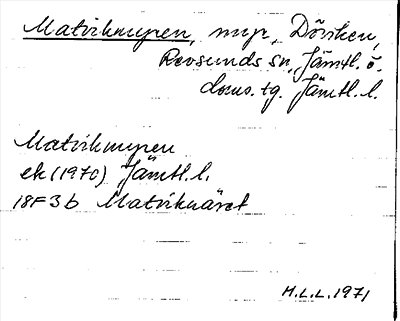 Matvikmyren, myr, Dövike​n,
Revsunds sn, Jämtl. ö.
doms. tg. Jämtl. l.
Matvikmyren
ek (1970) Jämtl. l.
18F3b Matviknäret
H.L.L. 1971